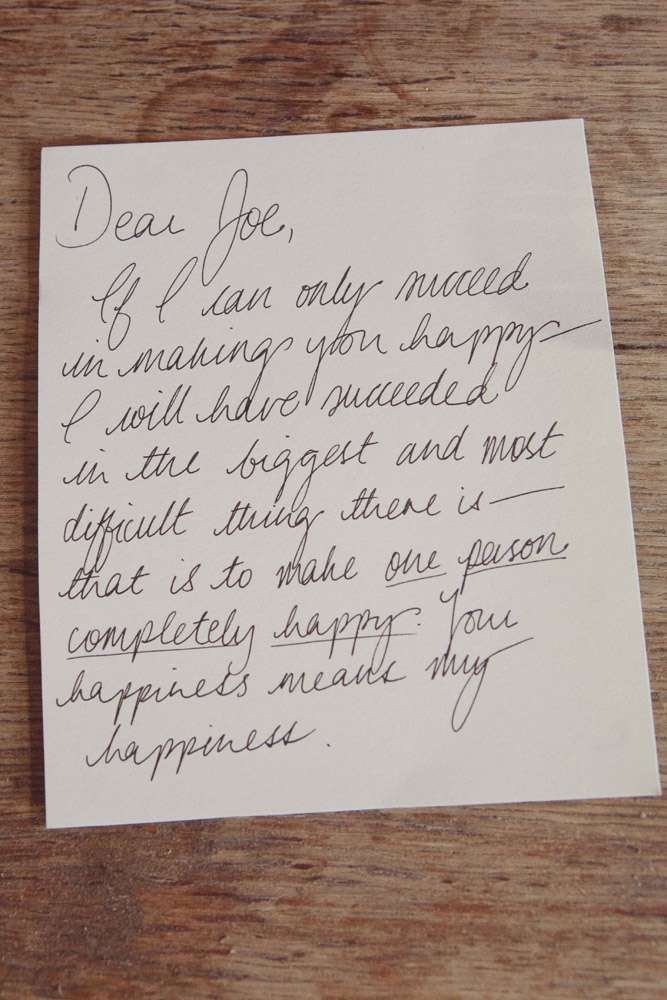 Dear Joe,
If I can only succeed
in making you happy —
I will have succeeded
in the biggest and most
difficult thing there is —
that is to make one person
completely happy. Your
happiness means my
happiness.